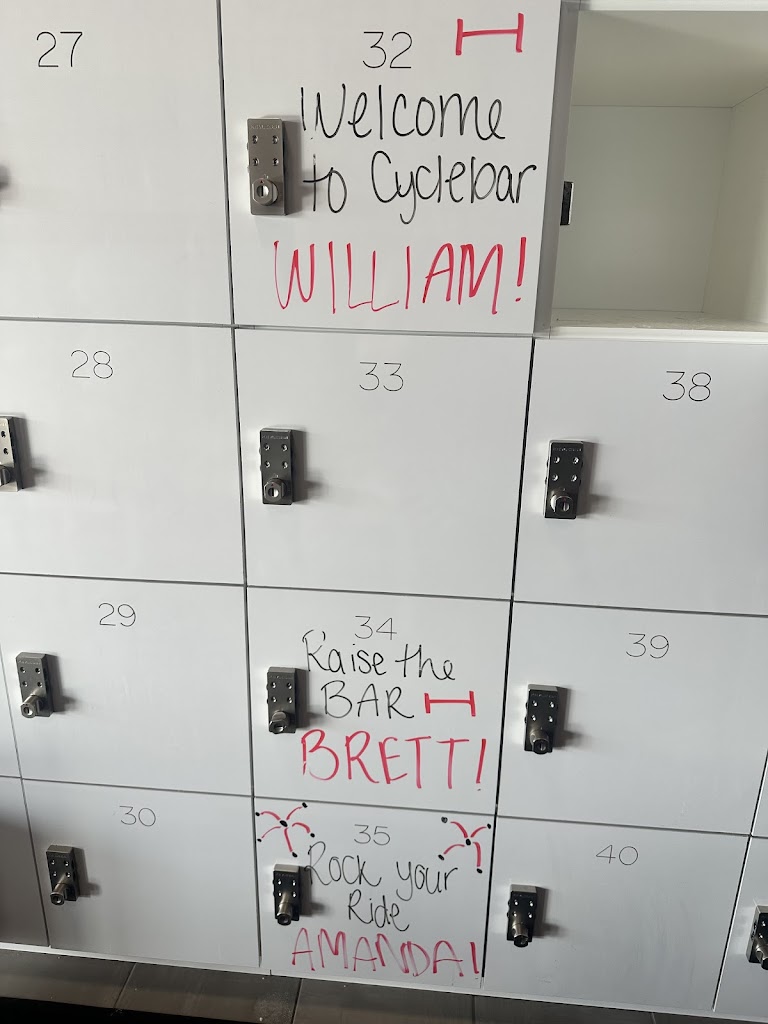 27
32
Welcome
to Cyclebar
WILLIAM!
28
33
38
29
34
Raise the
BAR
BRETT!
39
30
35
Rock your
Ride
AMANDA!
40